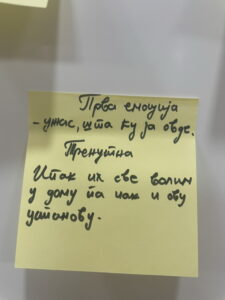 Прва емоција
- ужас, шта ћу ја овде.
Тренутна
Ипак их све волим
у дому па чак и ову
установу.